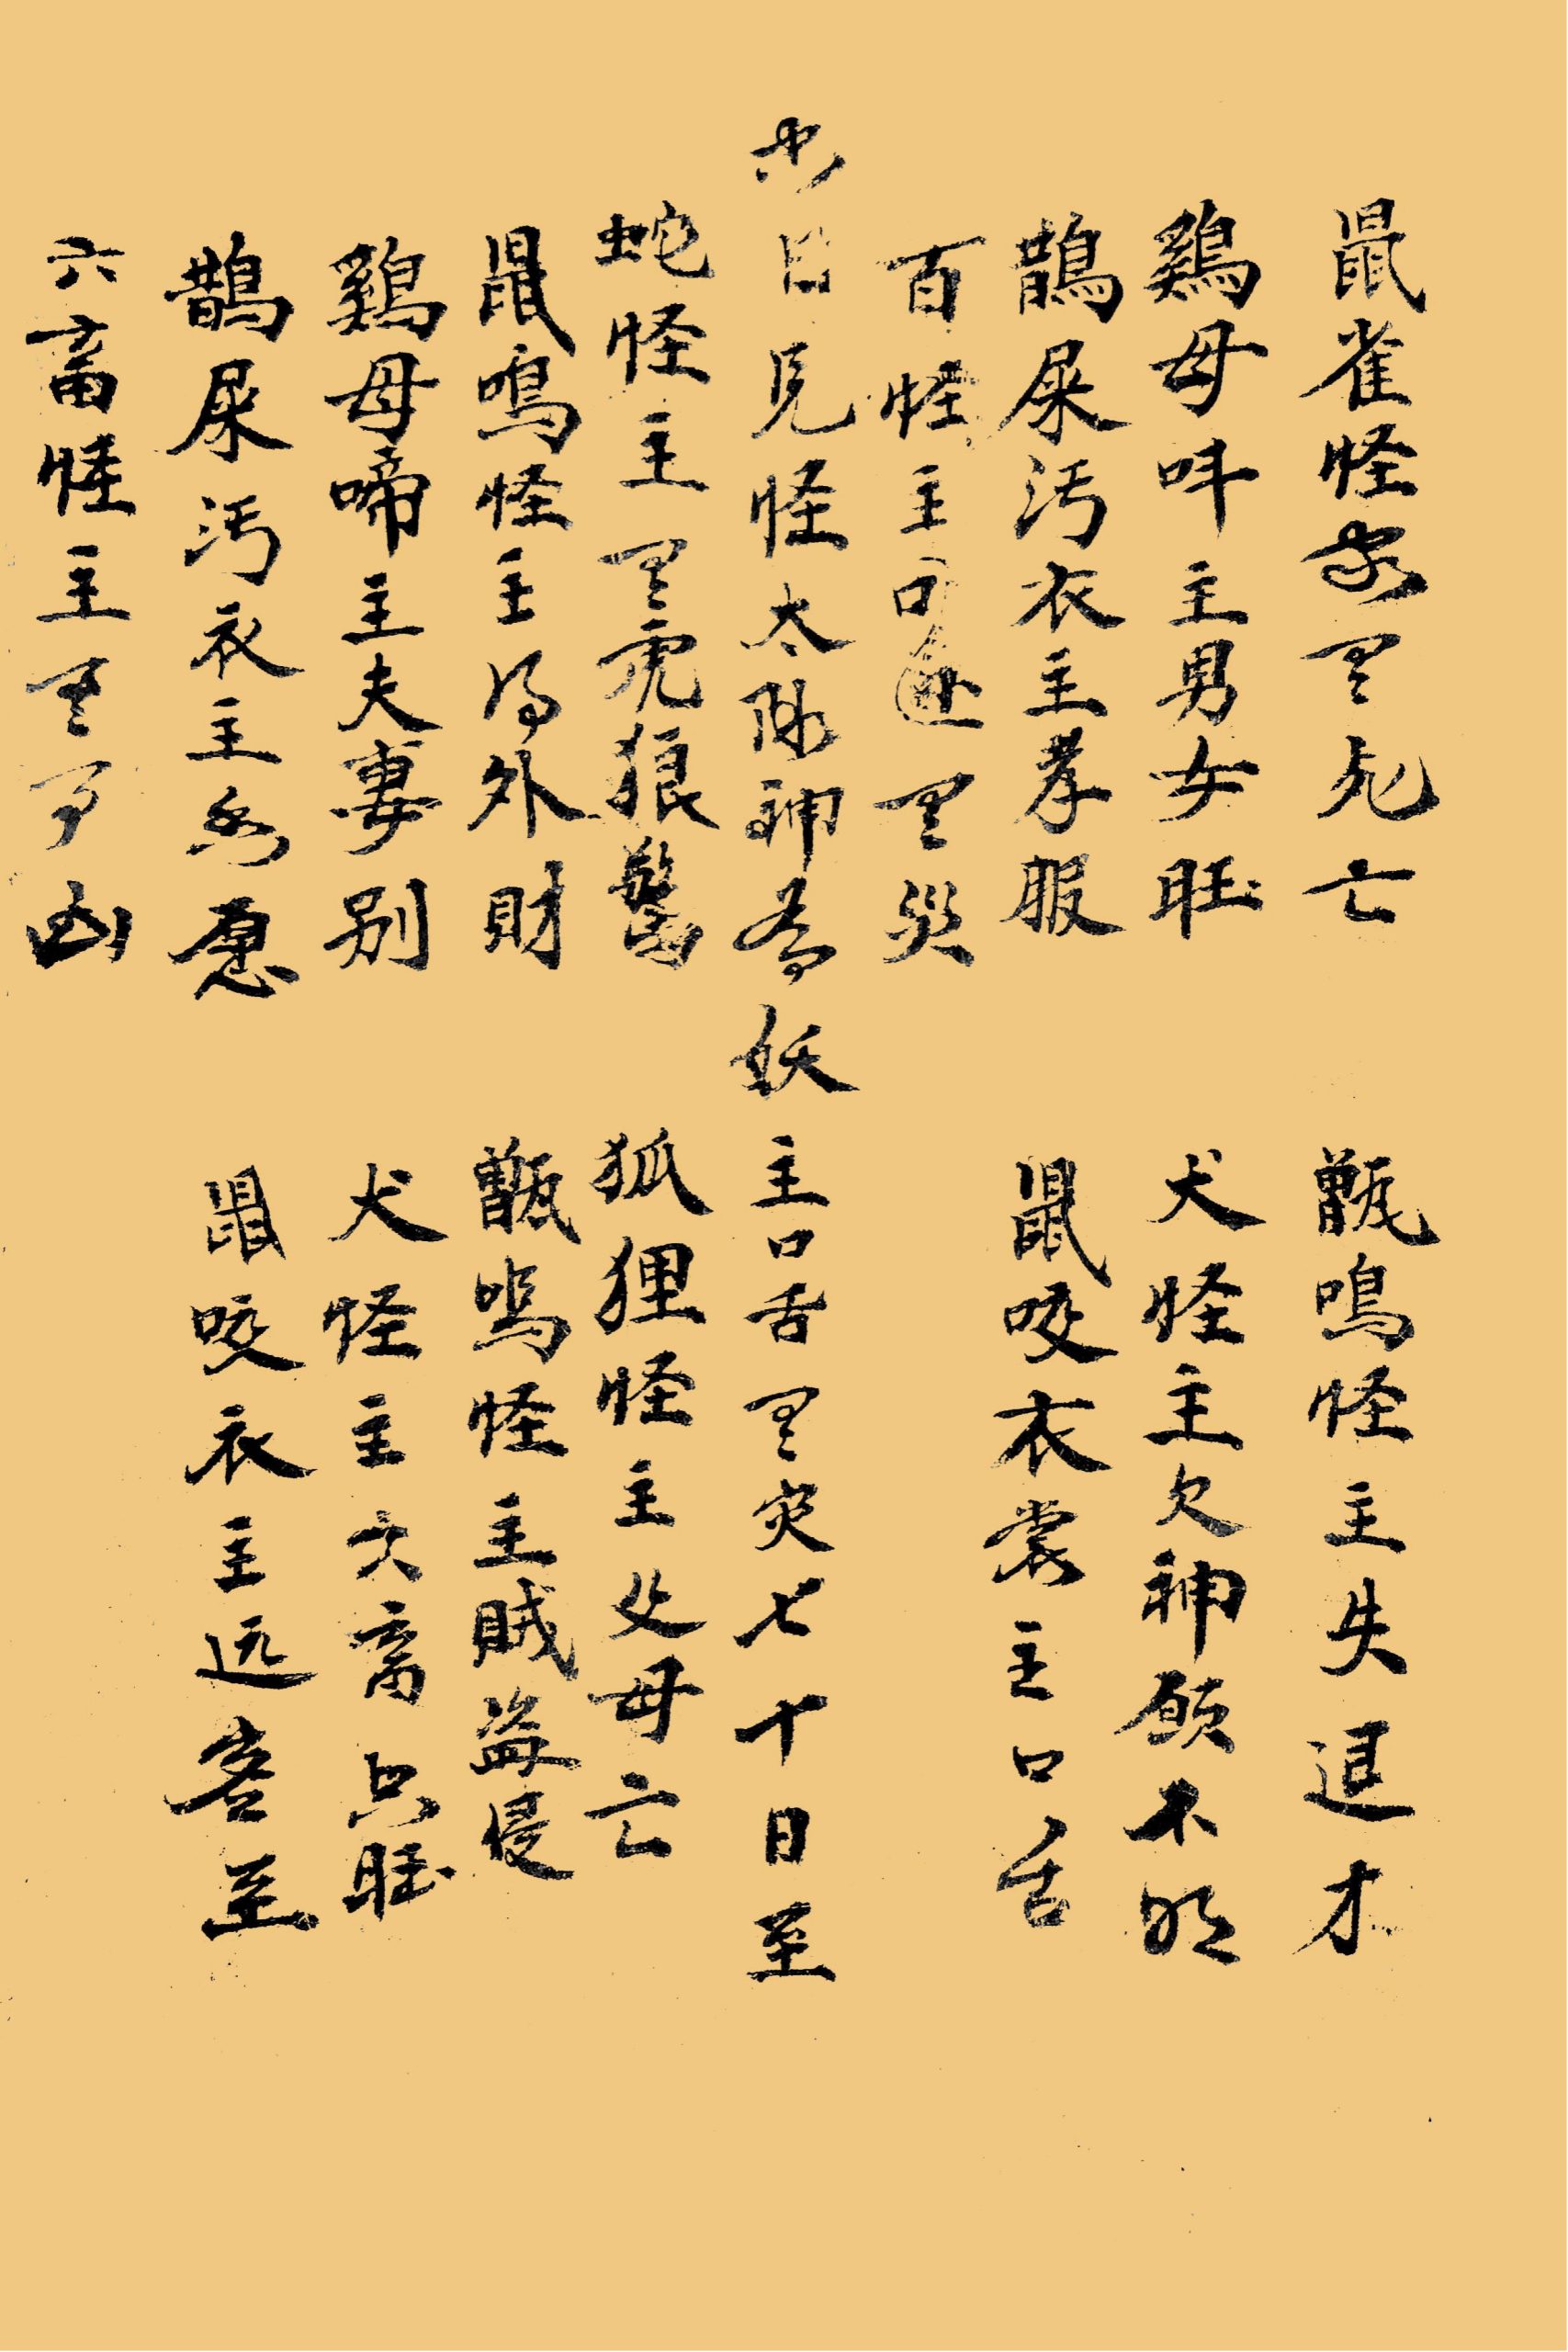 鼠雀怪家里死亡 甑鳴怪主失退才
鷄母叫主男女旺 犬怪主欠神願不明
鵲屎污衣主孝服 鼠咬衣裳主口舌
百怪主口 里災
日見怪太陰神為妖主口舌里灾七十日至
蛇怪主里虎狼驚 狐狸怪主父母亡
鼠鳴怪主得外財 甑鳴怪主賊盗侵
鷄母啼主夫妻别 犬怪主六畜只旺
鵲屎污衣主 愿 鼠咬衣主远客至
六畜怪主里 凶